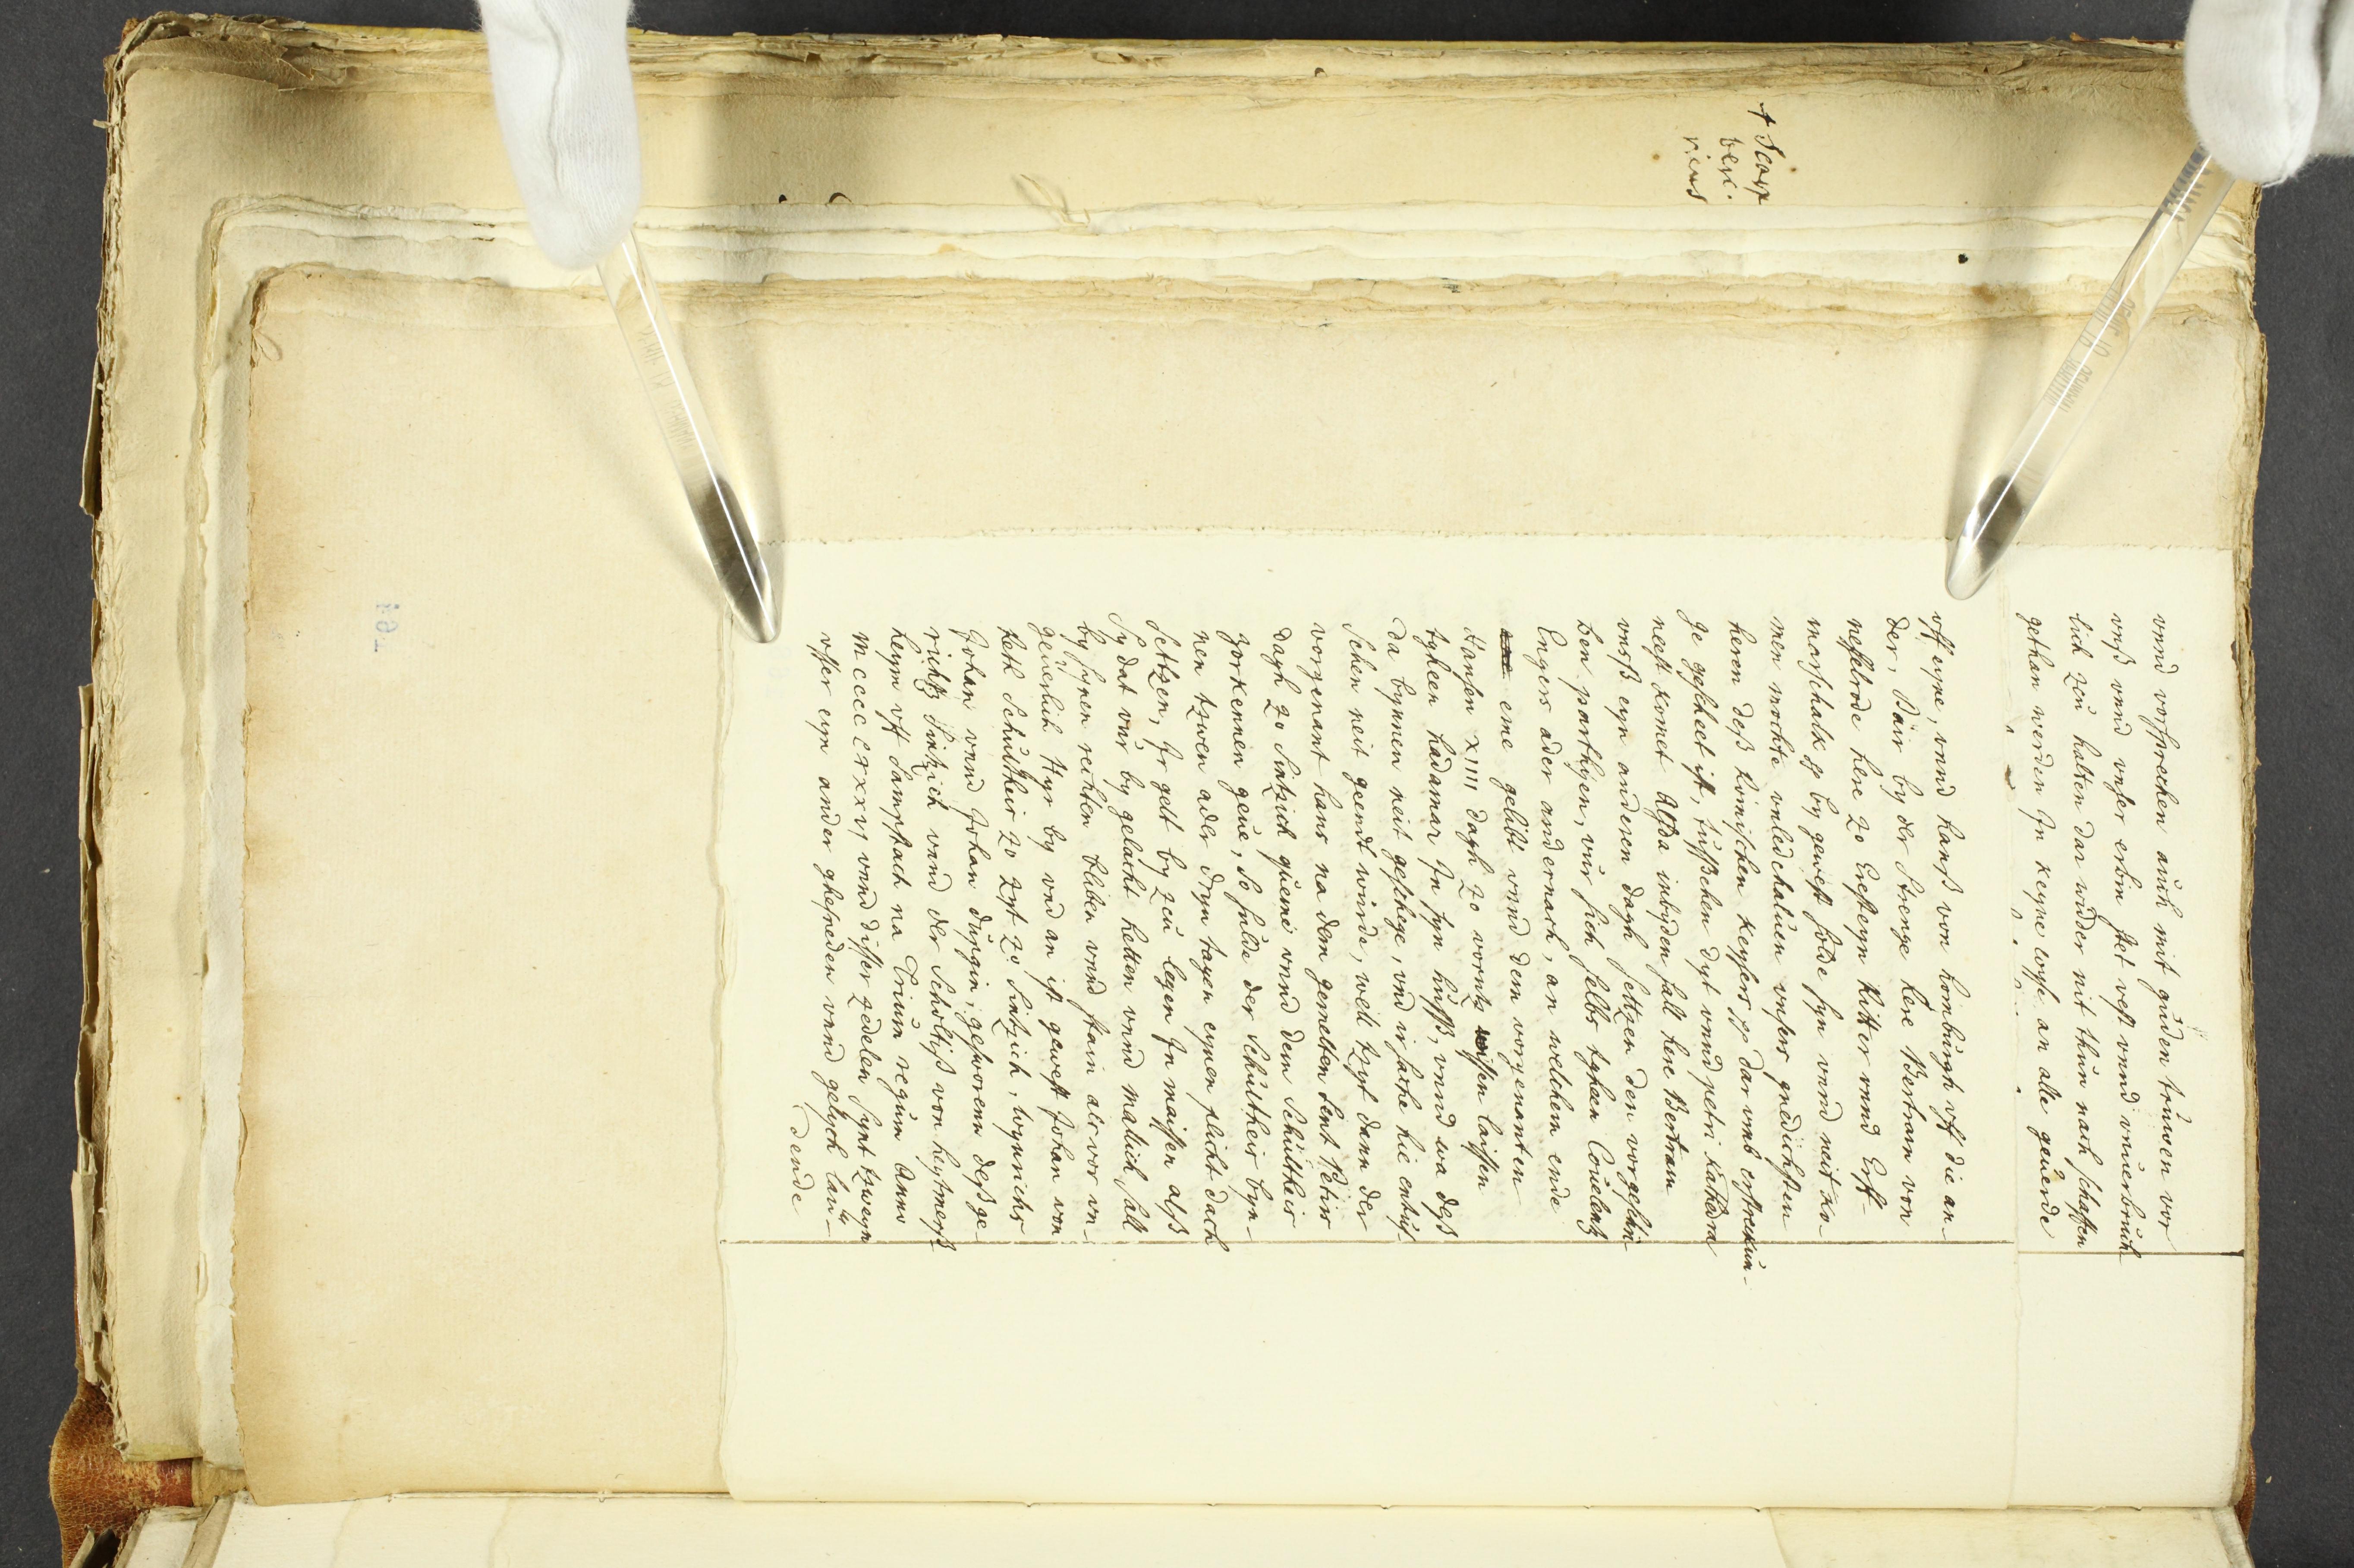 vnnd versprechen auch mit guden truwen vor
vnß vnnd vnser erben stet vest vnnd vnuerbruch
lich zeu halten dar widder nit thun nach schaffen
gethan werden In keyne wyse an alle geuerde
vff eyne, vnnd hanß von hombürgh vff die an-
der, Bair by der Strenge here Bertram von
nesselrode here zo Eresteyn Ritter vnnd Erff-
marschalk by gewest solde syn vnnd neit ko-
men mochte vmb
heren deß Römischen keysers dar vmb
ge gescheet ist, tusschen dyt vnnd petri kathedra
neest komet Alsda inbyden sall here Bertram
vnß eyn anderen dagh setzen den vorgeschri
ben parthyen, vur sich selbs tghen Couelentz
Engers ader andernach, an welchem ende
eme geliebt vnnd dem vorgenanten
Hansen xiiii dagh zo vorentz wissen laissen
tghen hadamar In syn huss, vnnd wa deß
da bynnen neit geschege, vnd ir sache hie entus-
schen neit geendt wurde, welt zyt dann der
vorgenant hans na dem gemelten sent Petirs
dagh zo Sintzich queme vnnd dem Schultheis
zorkennen geue, So sulde der Schultheis byn-
nen tzwen ader dryn tagen eynen plichtdach
Setzen, Ir gelt by zeu legen In maissen alß
Sy dat vur by gelacht hetten vnnd malich sall
by synen reichten bliben vnnd stain als vor vn-
geuerlich Hyr by vnd an ist gewest Johan von
Reth Schultheis zo zyt zo Sintzich, wynrichs
Johan vnnd Johan dungin, gesworen deß ge-
richtz Sintzich vnnd der Scholtiß von heymerß-
heym vff Sampstach na Trium regum Anno
m cccc lxxxvj vnnd disser zedelen Synt tzweyn
vsser eyn ander gesneden vnnd gelych lau-
dende